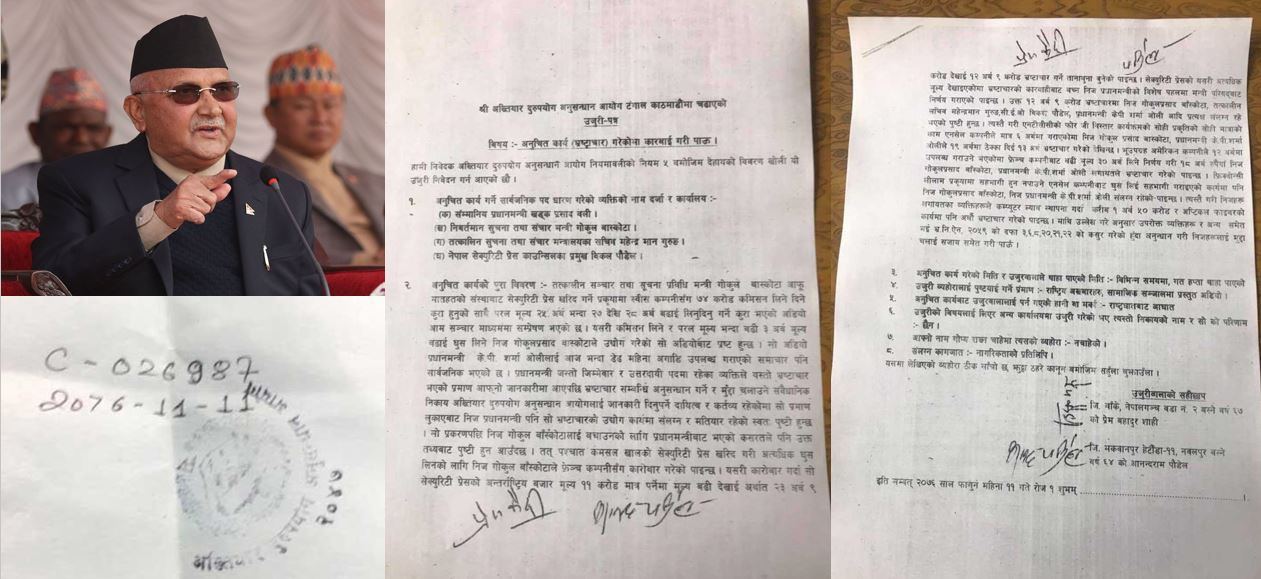 C-026987
2076-11-11
श्री अख्तियार दुरुपयोग अनुसन्धान आयोग टंगाल काठमाडौमा चढाएको
उजुरी-पत्र
विषय :- अनुचित कार्य (भ्रष्टाचार) गरेकोमा कारवाई गरी पाऊँ ।
हामी निवेदक अख्तियार दुरुपयोग अनुसन्धान आयोग नियमावलीको नियम ५ बमोजिम देहायको विवरण खोली यो
उजुरी निवेदन गर्न आएको छौ ।
१. अनुचित कार्य गर्ने सार्वजनिक पद धारण गरेको व्यक्तिको नाम दर्जा र कार्यालय :-
(क) सम्मानिय प्रधानमन्त्री खड्क प्रसाद वली ।
(ख) निवर्तमान सुचना तथा संचार मन्त्री गोकुल बास्कोटा ।
(ग) तत्कालिन सुचना तथा संचार मन्त्रालयका सचिव महेन्द्र मान गुरुङ ।
(घ) नेपाल सेक्युरिटी प्रेस काउन्सिलका प्रमुख विकल पौडेल ।
२. अनुचित कार्यको पुरा विवरण :- तत्कालीन सञ्चार तथा सुचना प्रविधि मन्त्री गोकुल बास्कोटा आफू
मातहतको संस्थाबाट सेक्युरिटी प्रेस खरिद गर्ने प्रकृयामा स्वीस कम्पनीसंग ७४ करोड कमिसन लिने दिने
कुरा हुनुको साथै परल मूल्य २५ अर्ब भन्दा २७ देखि २८ अर्ब बढाई लिनुदिनु गर्ने कुरा भएको अडियो
आम सञ्चार माध्यममा सम्प्रेषण भएको छ । यसरी कमिसन लिने र परल मूल्य भन्दा बढी ३ अर्ब मूल्य
बढाई घुस लिने निज गोकुलप्रसाद बास्कोटाले उद्योग गरेको सो अडियोबाट प्रष्ट हुन्छ । सो अडियो
प्रधानमन्त्री के.पी. शर्मा ओलीलाई आज भन्दा डेढ महिना अगाडि उपलब्ध गराएको समाचार पनि
सार्वजनिक भएको छ । प्रधानमन्त्री जस्तो जिम्मेबार र उत्तरदायी पदमा रहेका व्यक्तिले यस्तो भ्रष्टाचार
भएको प्रमाण आफ्नो जानकारीमा आएपछि भ्रष्टाचार सम्बन्धि अनुसन्धान गर्ने र मुद्दा चलाउने संवैधानिक
निकाय अख्तियार दुरुपयोग अनुसन्धान आयोगलाई जानकारी दिनुपर्ने दायित्व र कर्तव्य रहेकोमा सो प्रमाण
लुकाएबाट निज प्रधानमन्त्री पनि सो भ्रष्टाचारको उद्योग कार्यमा संलग्न र मतियार रहेको स्वतः पुष्टी हुन्छ
। सो प्रकरणपछि निज गोकुल बाँस्कोटालाई बचाउनको लागि प्रधानमन्त्रीबाट भएको कसरतले पनि उक्त
तथ्यबाट पुष्टी हुन आउँदछ । तत् पश्चात कमसल खालको सेक्युरिटी प्रेस खरिद गरी अत्यधिक घुस
लिनको लागि निज गोकुल बाँस्कोटाले फ्रेञ्च कम्पनीसँग कारोबार गरेको पाइन्छ । यसरी कारोबार गर्दा सो
सेक्युरिटी प्रेसको अन्तर्राष्ट्रिय बजार मूल्य ११ करोड मात्र पर्नेमा मूल्य बढी देखाई अर्थात २३ अर्ब ९
करोड देखाई १२ अर्ब ९ करोड भ्रष्टाचार गर्ने तानाबाना बुनेको पाइन्छ । सेक्युरिटी प्रेसको यसरी अत्यधिक
मूल्य देखाइएकोमा भ्रष्टाचारको कारवाहीबाट बच्न निज प्रधानमन्त्रीको विशेष पहलमा मन्त्री परिषदबाट
निर्णय गराएको पाइन्छ । उक्त १२ अर्ब ९ करोड भ्रष्टाचारमा निज गोकुलप्रसाद बाँस्कोटा, तत्कालिन
सचिव महेन्द्रमान गुरुङ, सी.ई.ओ विकल पौडेल, प्रधानमन्त्री केपी शर्मा ओली आदि प्रत्यक्ष संलग्न रहे
भएको पुष्टी हुन्छ । त्यस्तै गरी एनटीसीको फोर जी विस्तार कार्यक्रमको सोही प्रकृतिको सोति मात्राको
काम एनसेल कम्पनीले मात्र ६ अर्बमा गराएकोमा निज गोकुलप्रसाद बाँस्कोटा, प्रधानमन्त्री के.पी.शर्मा
ओलीले १९ अर्बमा ठेक्का दिई १३ अर्ब भ्रष्टाचार गरेको देखिन्छ । भूउपग्रह अमेरिकन कम्पनीले १२ अर्बमा
उपलब्ध गराउने भएकोमा फ्रेन्च कम्पनीबाट बढी मूल्य ३० अर्ब लिने निर्णय गरी १८ अर्ब रुपैयाँ निज
गोकुलप्रसाद बाँस्कोटा, प्रधानमन्त्री के.पी.शर्मा ओली समायतले भ्रष्टाचार गरेको पाइन्छ । फ्रिक्वेन्सी
लिलाम प्रकृयामा सहभागी हुन नपाउने एनसेल कम्पनीबाट घुस लिई सहभागी गराइएको कार्यमा पनि
निज गोकुलप्रसाद बाँस्कोटा, प्रधानमन्त्री के.पी.शर्मा ओली संलग्न रहेको पाइन्छ । त्यस्तै गरी निजहरु
लगायतका व्यक्तिहरुले कम्प्युटर ल्याब स्थापना गर्दा करीब १ अर्ब ५० करोड र अप्टिकल फाइबरको
कार्यमा पनि अर्बौ भ्रष्टाचार गरेको पाइन्छ । माथि उल्लेख गरे अनुसार उपरोक्त व्यक्तिहरु र अन्य समेत
भई भ्र.नि.ऐन, २०५९ को दफा ३,६,८,२०,२१,२२ को कसूर गरेको हुँदा अनुसन्धान गरी निजहरुलाई मुद्दा
चलाई सजाय समेत गरी पाउँ ।
३. अनुचित कार्य गरेको मिति र उजुरवालाले थाहा पाएको मिति :- विभिन्न समयमा, गत हप्ता थाहा पाएको
४. उजुरी ब्यहोरालाई पुष्ट्याई गर्ने प्रमाण :- राष्ट्रिय अखबारहरु, सामाजिक सञ्जालमा प्रस्तुत अडियो ।
५. अनुचित कार्यबाट उजुरवालालाई पर्न गएको हानी था मर्का :- राष्ट्रघातबाट आघात
६. उजुरीको विषयलाई लिएर अन्य कार्यालयमा उजुरी गरेको भए त्यस्तो निकायको नाम र सो को परिणाम
:- छैन ।
७. आफ्नो नाम गोप्य राख्न चाहेमा त्यसको ब्यहोरा :- नचाहेको ।
८. संलग्न कागजात :- नागरिकताको प्रतिलिपि ।
यसमा लेखिएको ब्यहोरा ठीक साँचो छ, झुठ्ठा ठहरे कानून बमोजिम सहुँला बुझाउँला ।
उजुरीवालाको सहीछाप
जि. बाँके, नेपालगञ्ज वडा नं. २ बस्ने वर्ष ६७
को प्रेम बहादुर शाही
जि. मकवानपुर हेटौंडा-११, नवलपुर बस्ने
वर्ष ६४ को आनन्दराम पौडेल
इति सम्वत् २०७६ साल फागुन महिना ११ गते रोज १ शुभम्